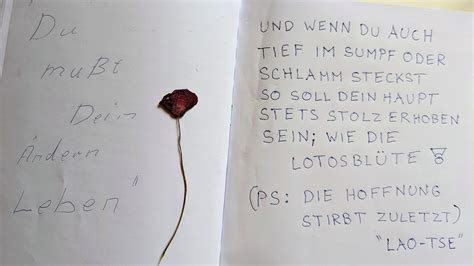 Du
mußt
Dein
Ändern
Leben"
UND WENN DU AUCH
TIEF IM SUMPF ODER
SCHLAMM STECKST
SO SOLL DEIN HAUPT
STETS STOLZ ERHOBEN
SEIN; WIE DIE
LOTOSBLÜTE
(PS: DIE HOFFNUNG
STIRBT ZULETZT)
"LAO-TSE"